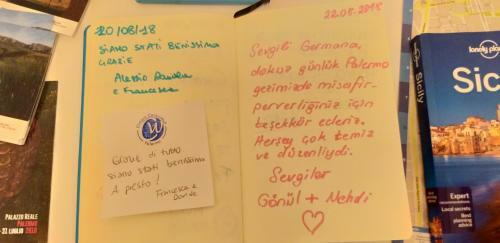 20/08/18
SIAMO STATI BENISSIMO
GRAZIE
Alessio Daniela
e Francesca
GRAZIE di tutto
siamo stati benissimo
A presto!
Francesca e
Davide
22.08.2018
Sevgili Germana,
dokuz günlük Palermo
gezimizde misafir-
perverliğiniz için
teşekkür ederiz.
Herşey çok temiz
ve düzenliydi.
Sevgiler
Gönül + Mehdi
PALAZZO REALE
PALERMO
-31 LUGLIO 2018
lonely planet
Sicily
Sic
Expert
recommendations
Local secrets
Best planning